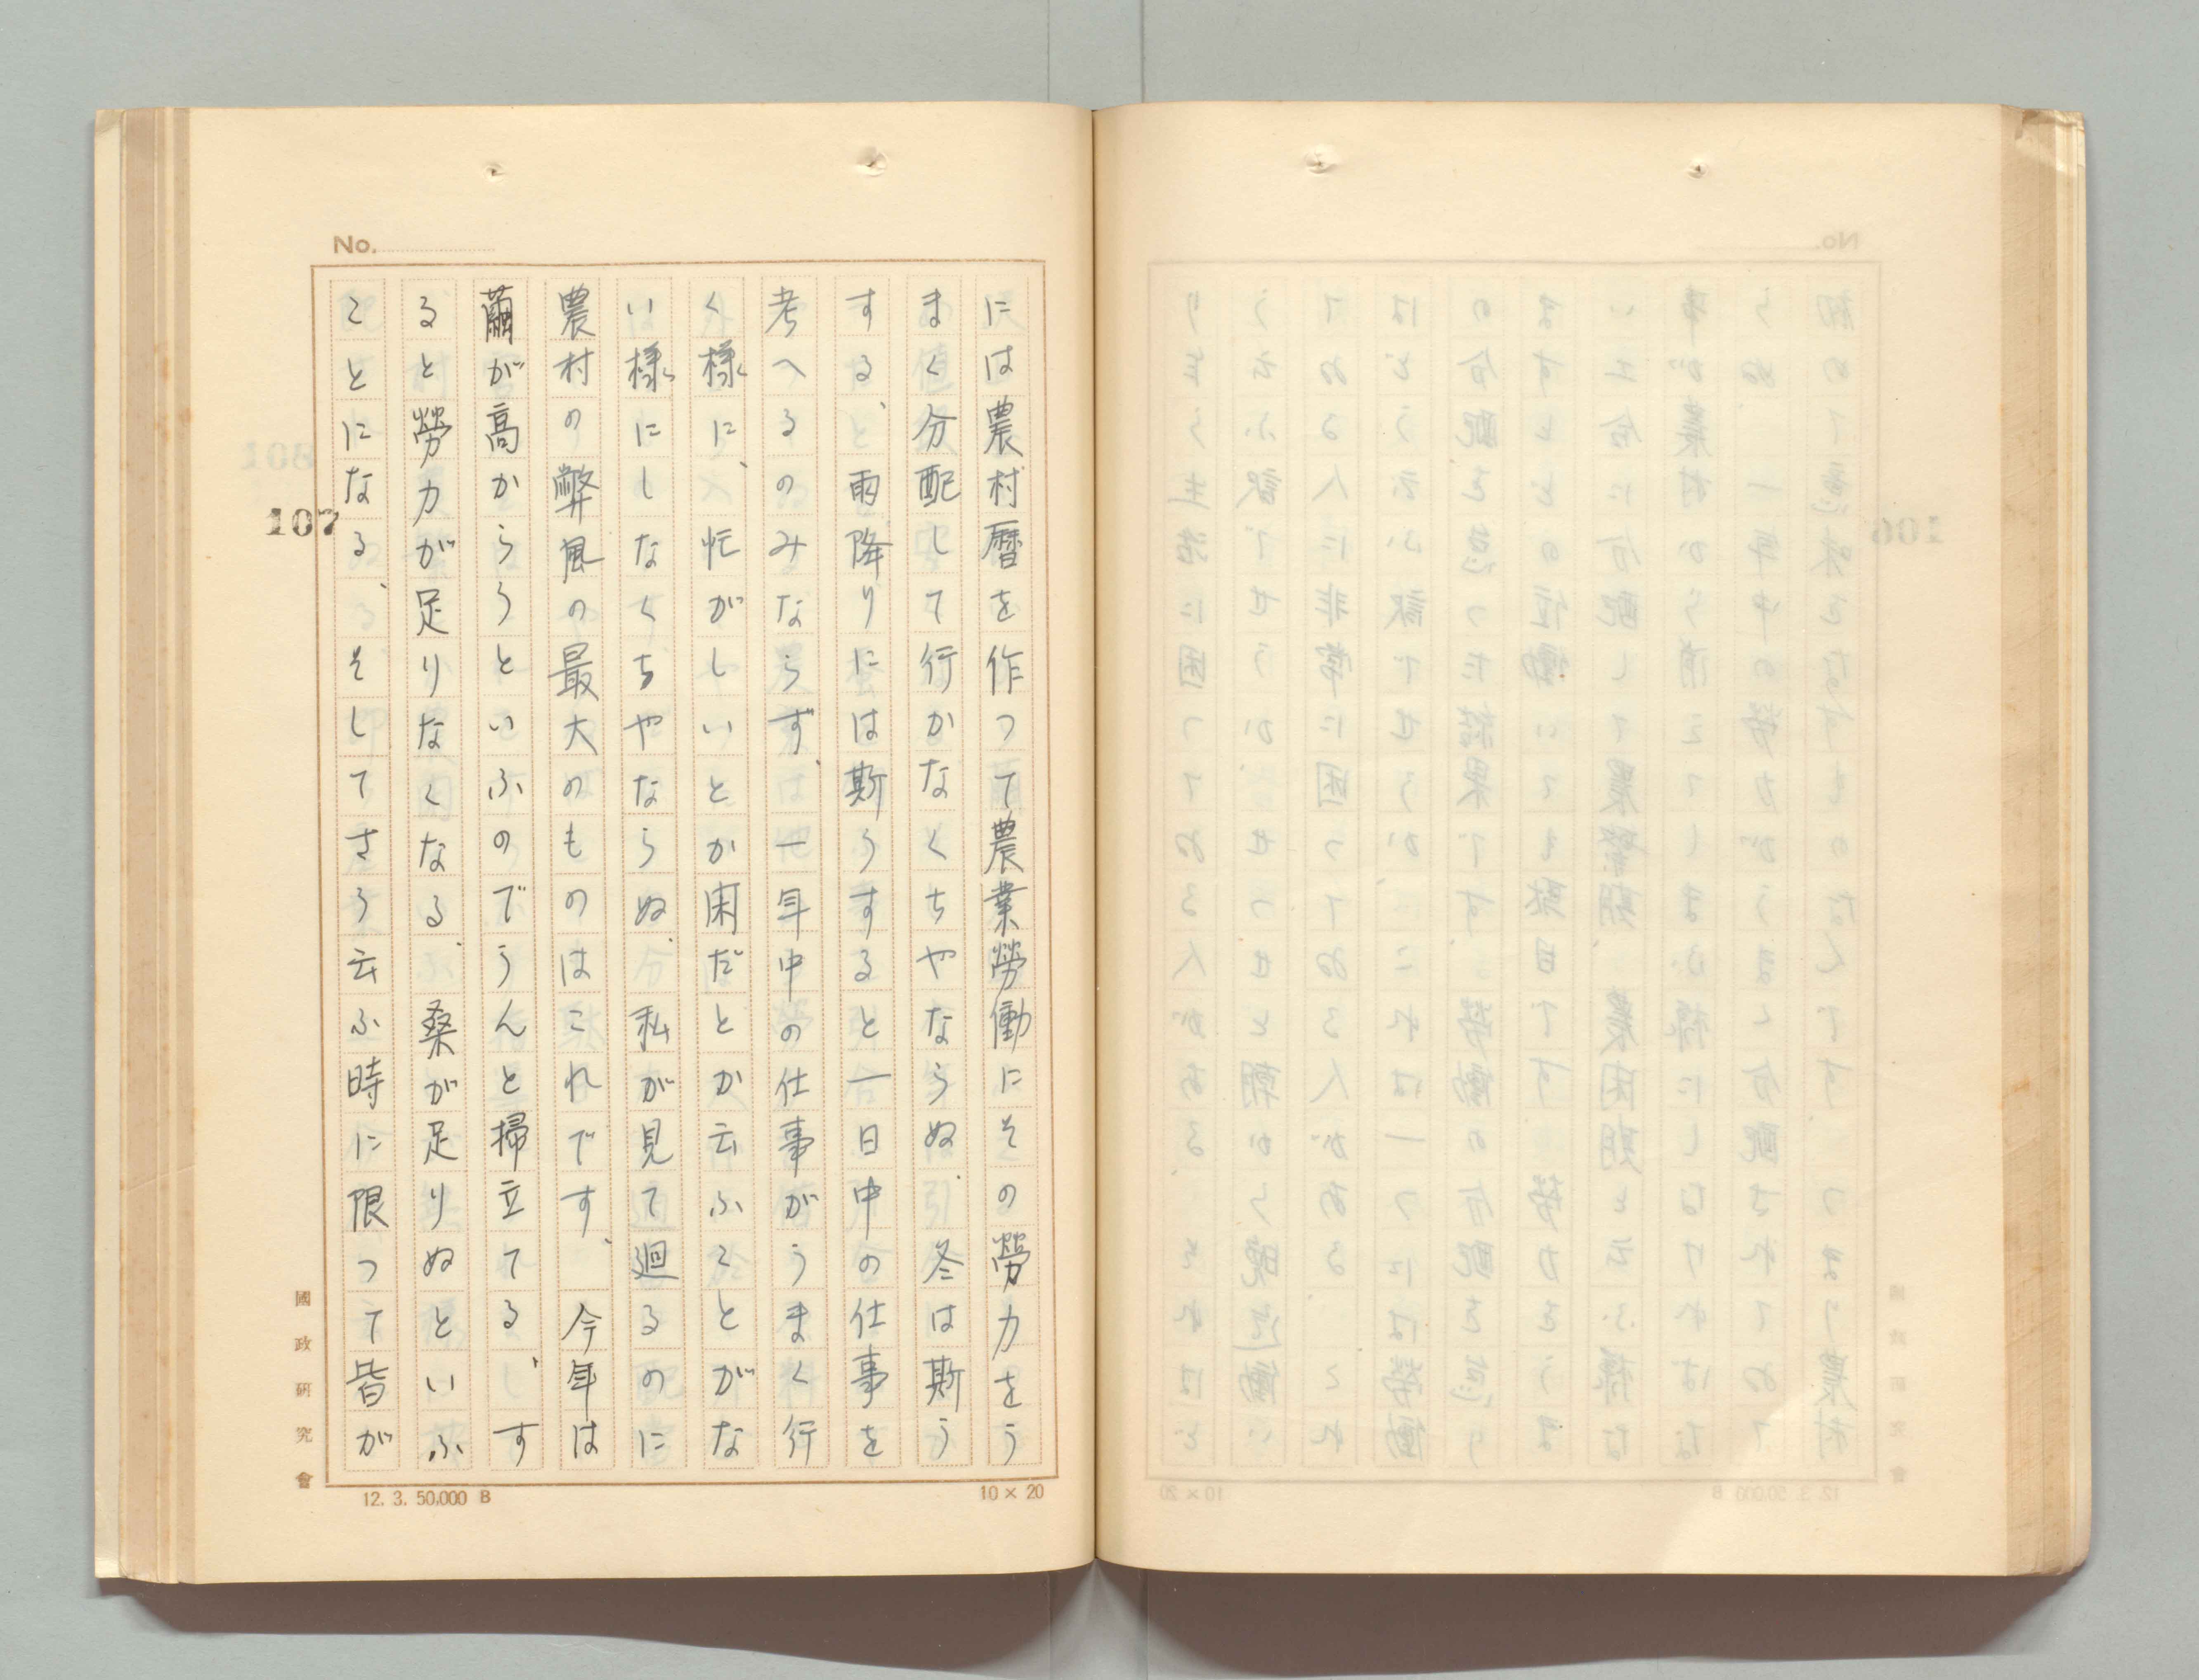 No.
には農村暦を作つて農業勞働にその勞力をう
まく分配して行かなくちやならぬ、冬は斯う
する、雨降りには斯うすると一日中の仕事を
考へるのみならず、一年中の仕事がうまく行
く様に、忙がしいとか困だとか云ふことがな
い様にしなくちやならぬ、私が見て廻るのに
農村の弊風の最大のものはこれです、今年は
繭が高からうといふのでうんと掃立てる、す
ると勞力が足りなくなる、桑が足りぬといふ
ことになる、そしてさう云ふ時に限つて皆が
107
國政研究會
12. 3. 50,000 B
10×20